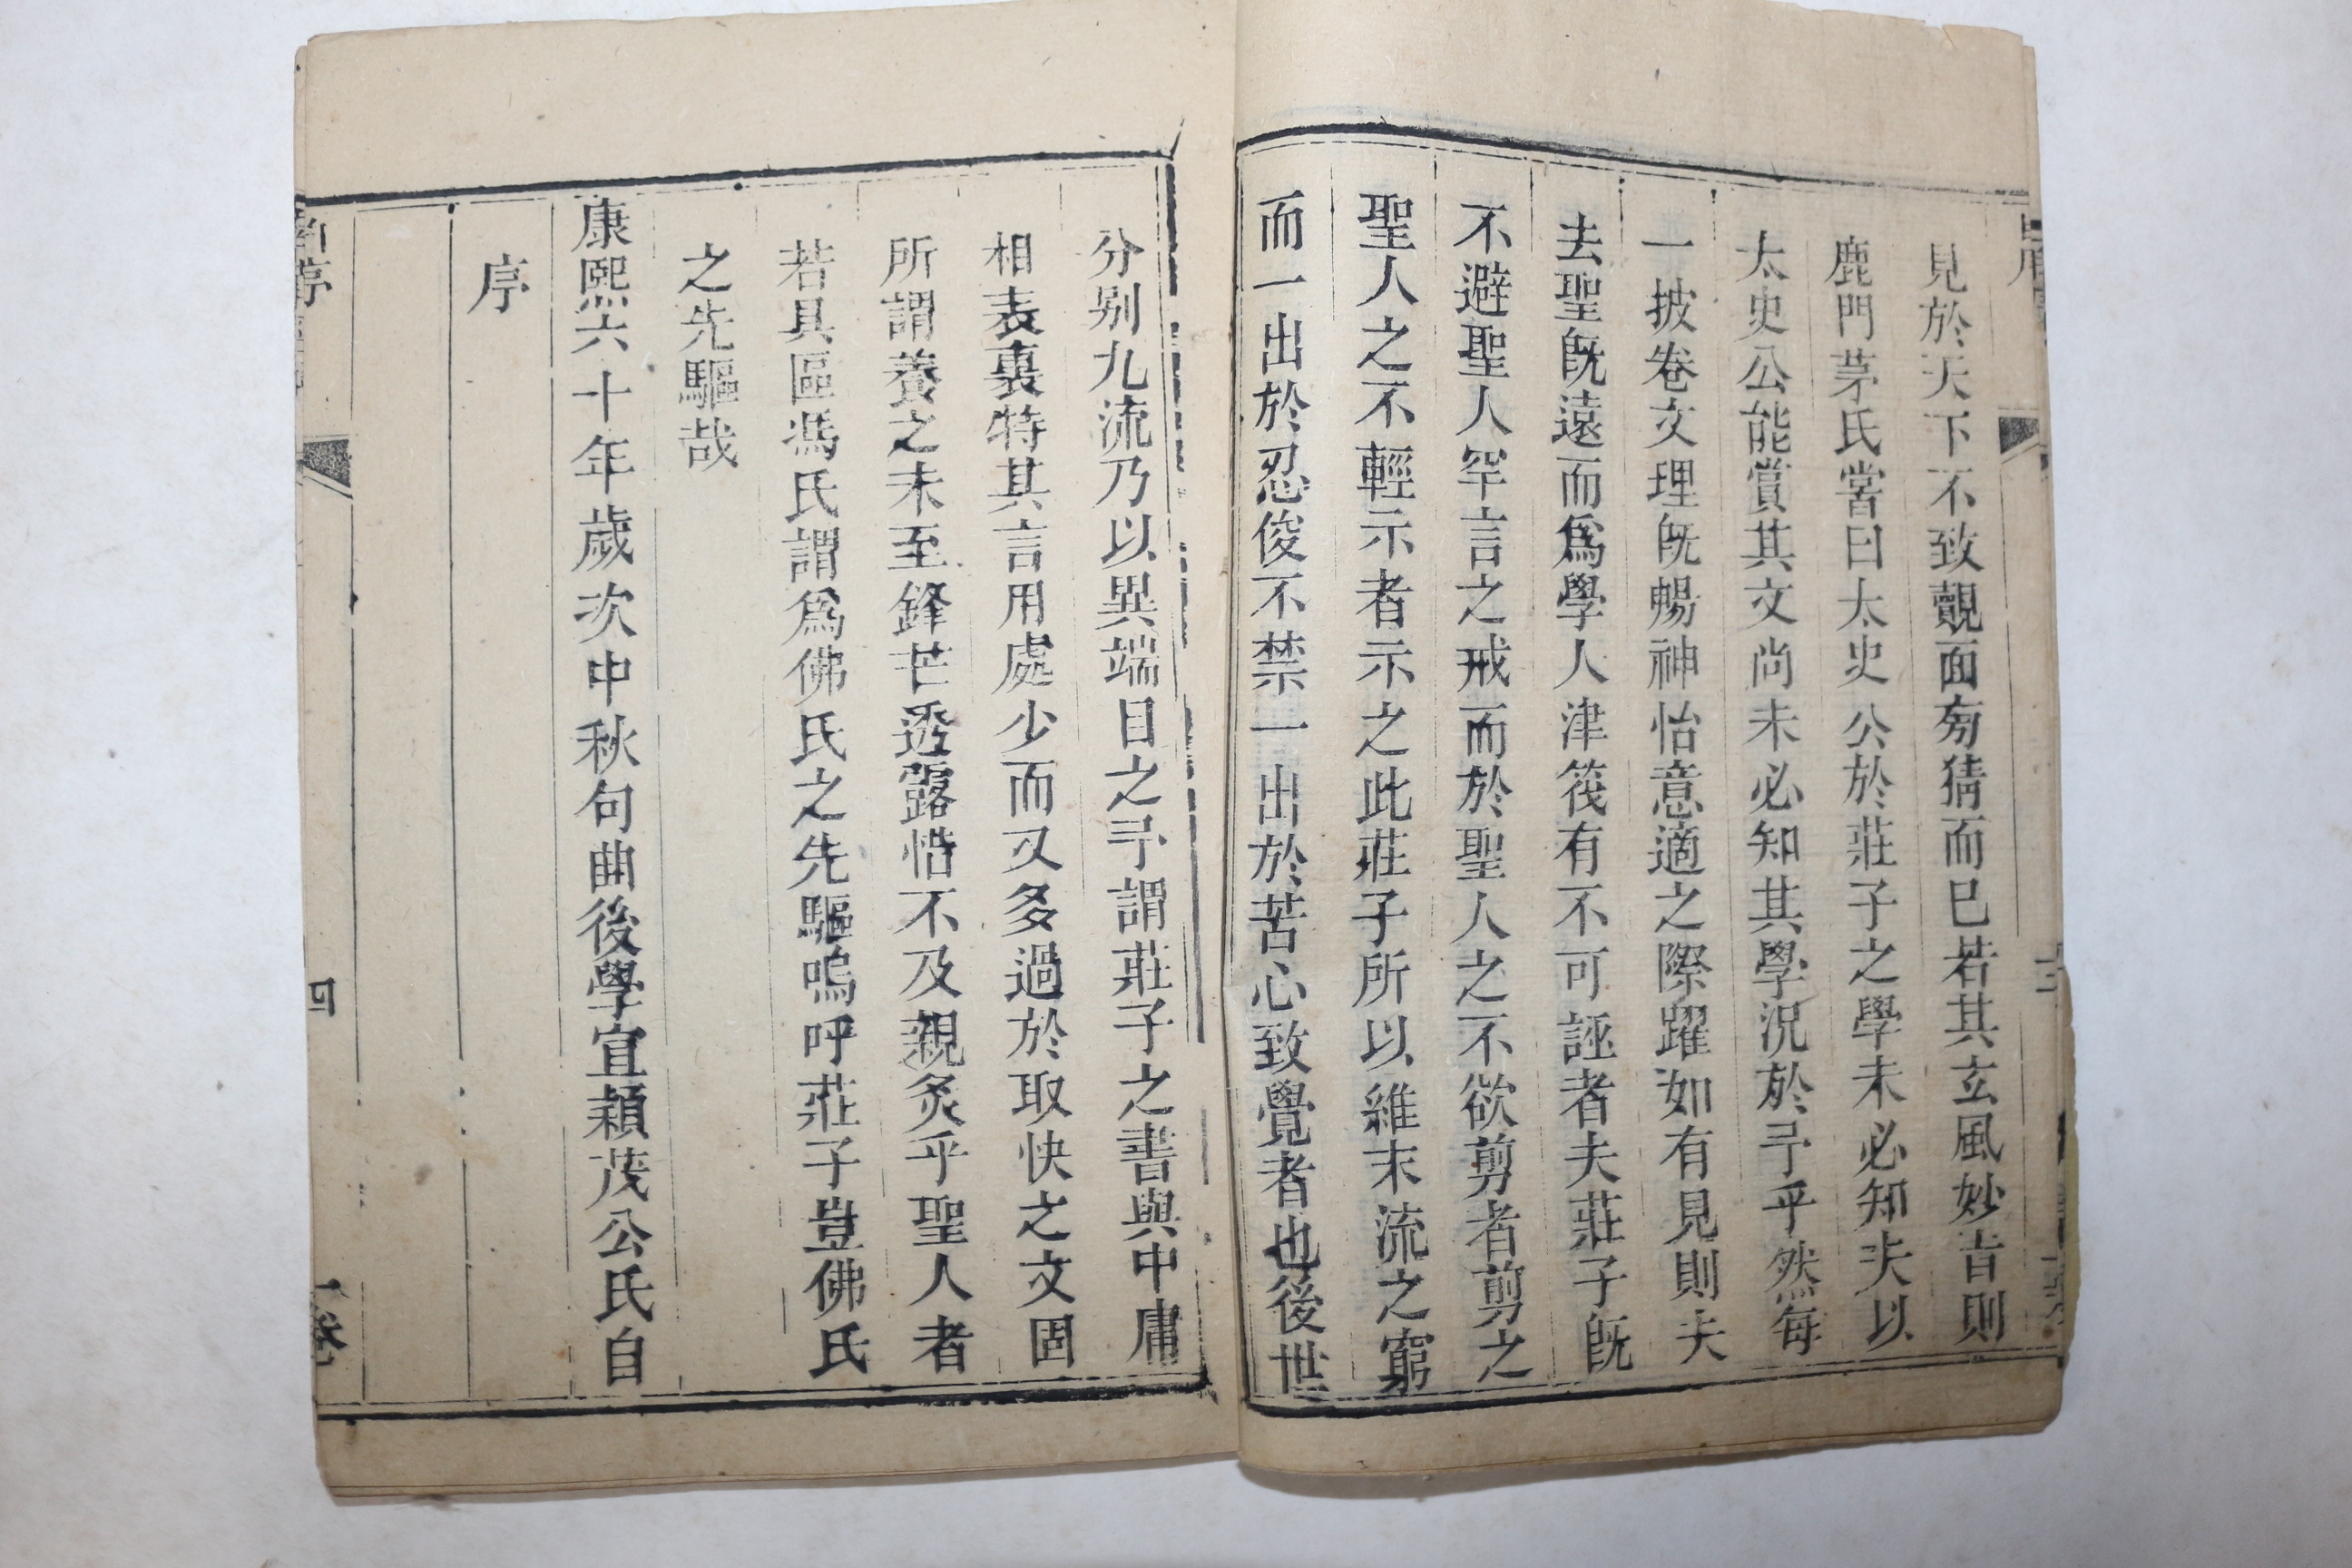 見於天下不致覿面旁猜而已若其玄風妙㫖則
鹿門茅氏嘗曰太史公於莊子之學未必知夫以
太史公能賞其文尚未必知其學況於予乎然每
一披卷文理旣暢神怡意適之際躍如有見則夫
去聖旣遠而爲學人津筏有不可誣者夫莊子旣
不避聖人罕言之戒而於聖人之不欲剪者剪之
聖人之不輕示者示之此莊子所以維末流之窮
而一出於忍俊不禁一出於苦心致覺者也後世
分别九流乃以異端目之予謂莊子之書與中庸
相表裏特其言用處少而又多過於取快之文固
所謂養之未至鋒芒透露惜不及親炙乎聖人者
若具區馮氏謂爲佛氏之先驅嗚呼莊子豈佛氏
之先驅哉
康熙六十年歲次中秋句曲後學宣穎茂公氏自
序
序
四
卷